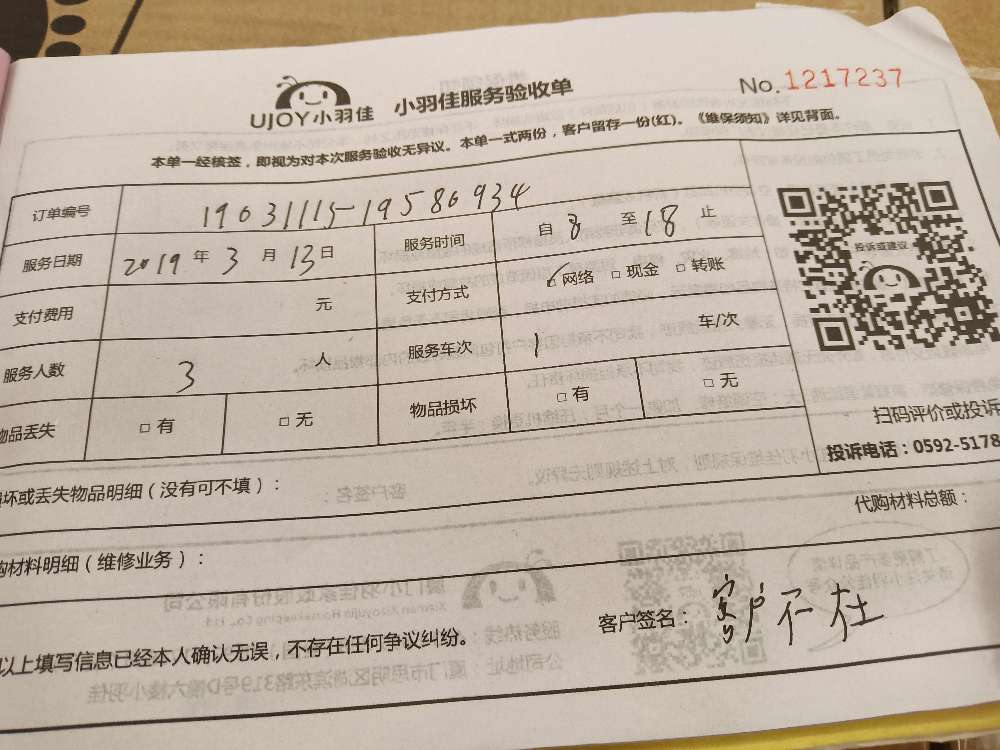 UJOY小羽佳 小羽佳服务验收单 No.1217237
本单一经核签，即视为对本次服务验收无异议。本单一式两份，客户留存一份(红)。《维保须知》详见背面。
订单编号 19031115-19586934
服务日期 2019年3月13日 服务时间 自8至18止
支付费用 元 支付方式 ☑网络 □现金 □转账
服务人数 3人 服务车次 1 车/次
物品丢失 □有 □无 物品损坏 □有 □无
投诉或建议
扫码评价或投诉
投诉电话：0592-5178
坏或丢失物品明细（没有可不填）：
购材料明细（维修业务）： 代购材料总额：
以上填写信息已经本人确认无误，不存在任何争议纠纷。 客户签名：客户不在